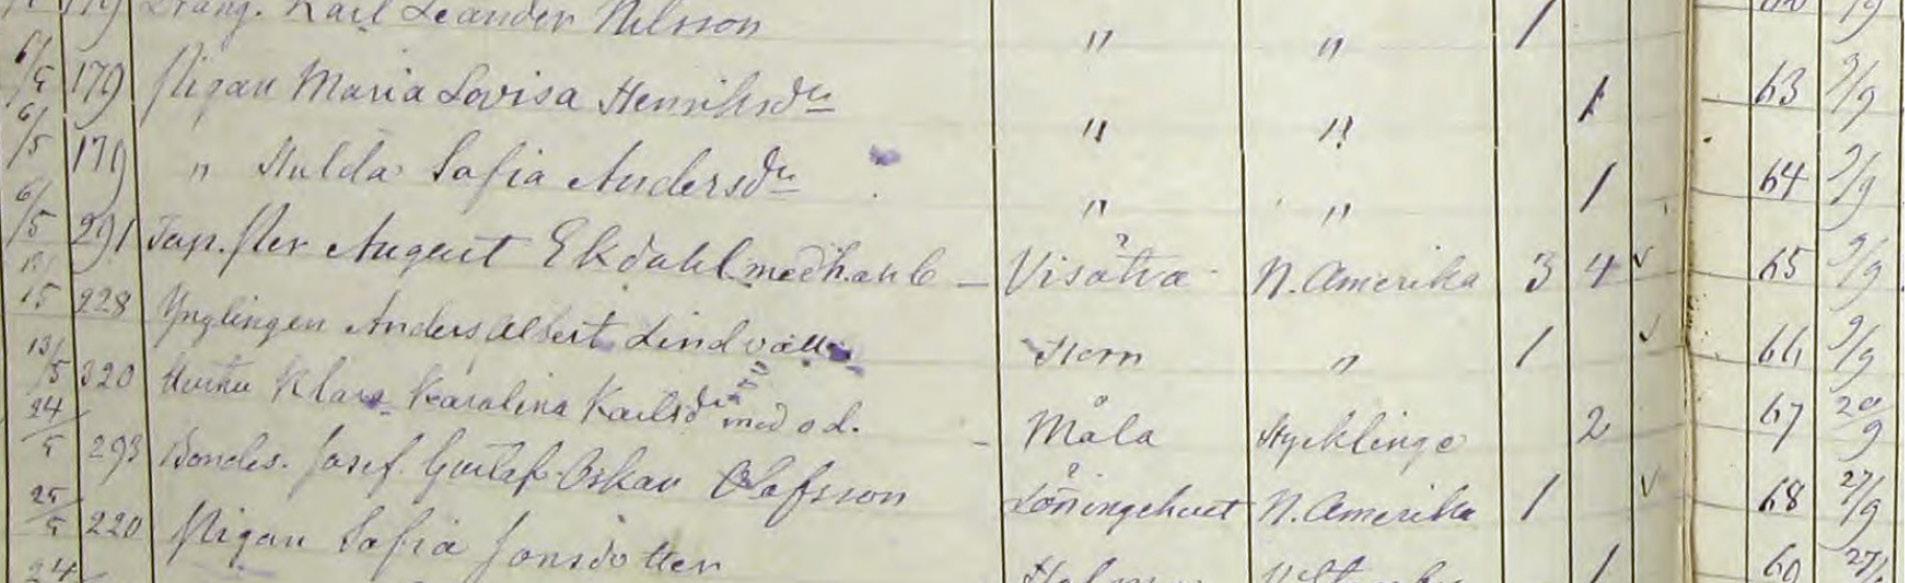 179 Dräng. Karl Leander Nilsson " " 1
6/5 179 Pigan Maria Lovisa Henriksdr " " 1 63 9/9
6/5 179 " Hulda Sofia Andersdr " " 1 64 9/9
6/5 291 August Ekdahl med h. o. b Visätra N. Amerika 3 4 v 65 9/9
228 Ynglingen Anders Albert Lindvall Horn " 1 v 66 9/9
13/5 320 Hustru Klara Karolina Karlsdr med o d. Måla Hycklinge 2 67 20/9
24/5 293 Bondes. Josef Gustaf Oskar Olafsson Löningehult N. Amerika 1 v 68 27/9
25/5 220 Pigan Sofia Jonsdotter 1